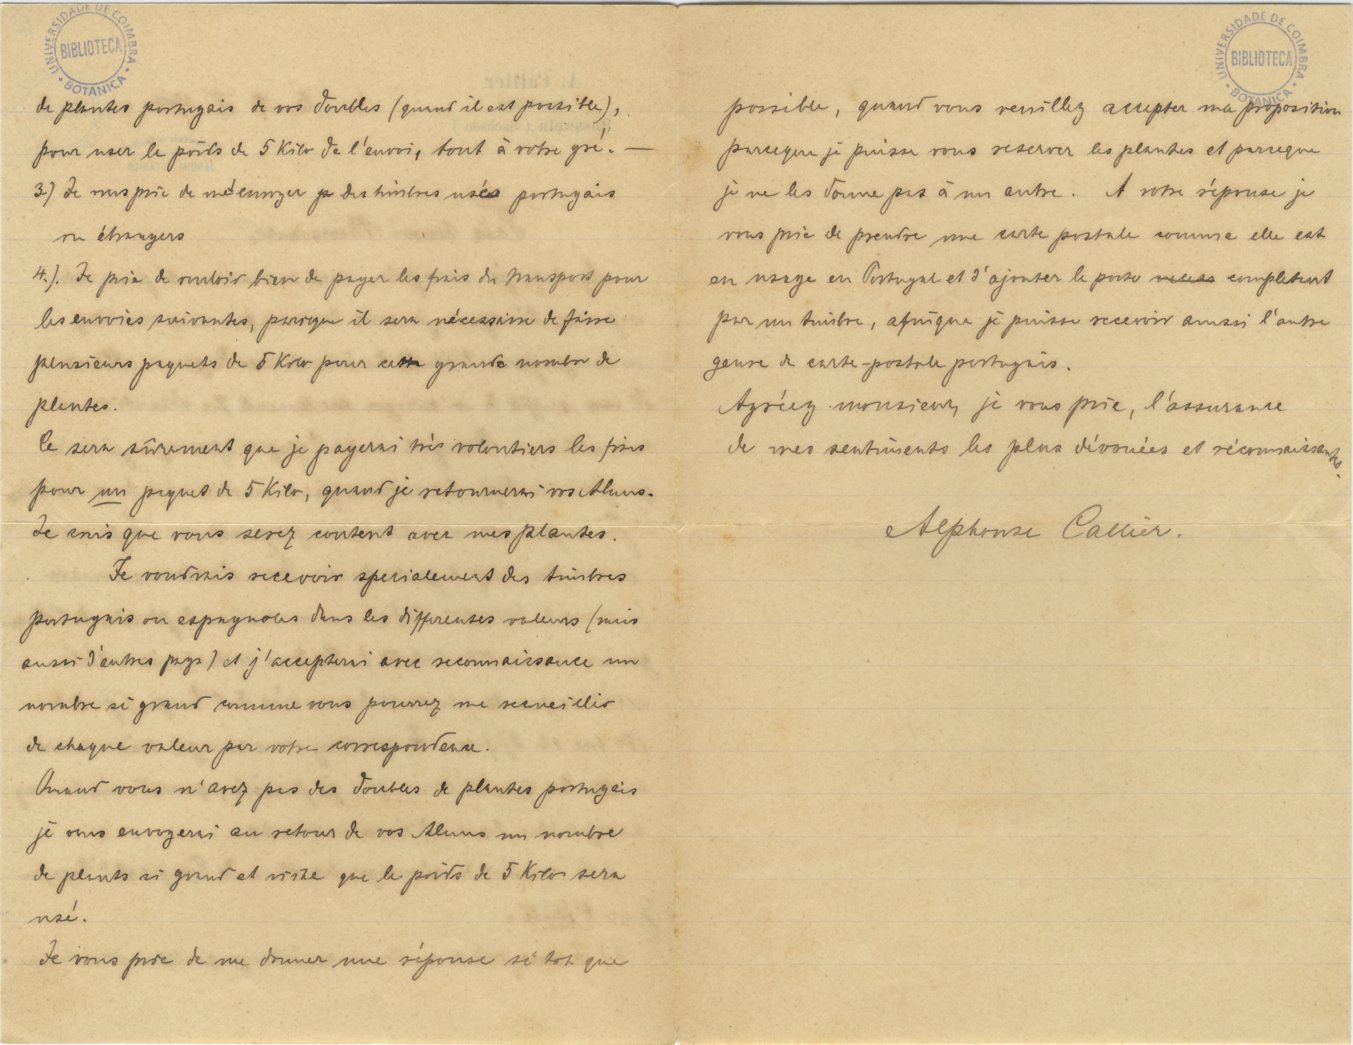 UNIVERSIDADE DE COIMBRA
BIBLIOTECA
BOTANICA
de plantes portugais de vos doubles (quand il est possible),
pour user le poids de 5 Kilo de l'envoi, tout à votre gré. —
3) Je vous prie de m'envoyer des timbres usés portugais
ou étrangers
4.). Je prie de vouloir bien de payer les frais du transport pour
les envoies suivantes, parceque il sera nécessaire de faire
plusieurs paquets de 5 Kilo pour cette grande nombre de
plantes.
Ce sera sûrement que je payerai très volontiers les frais
pour un paquet de 5 Kilo, quand je retournerai vos Alnus.
Je crois que vous serez content avec mes plantes.
Je voudrais recevoir specialement des timbres
portugais ou espagnoles dans les differentes valeurs (mais
aussi d'autres pays) et j'accepterai avec reconnaissance un
nombre si grand comme vous pourrez me recueillir
de chaque valeur par votre correspondence.
Quand vous n'avez pas des doubles de plantes portugais
je vous envozerai au retour de vos Alnus un nombre
de plants si grand et riche que le poids de 5 Kilo sera
usé.
Je vous prie de me donner une réponse si tot que
UNIVERSIDADE DE COIMBRA
BIBLIOTECA
BOTANICA
possible, quand vous veuillez accepter ma proposition
parceque je puisse vous reserver les plantes et parceque
je ne les donne pas à un autre. A votre réponse je
vous prie de prendre une carte postale comme elle est
en usage en Portugal et d'ajouter le porto completent
par un timbre, afinque je puisse recevoir aussi l'autre
genre de carte-postale portugais.
Agréez monsieur, je vous prie, l'assurance
de mes sentiments les plus dévouées et réconnaissants.
Alphonse Callier.